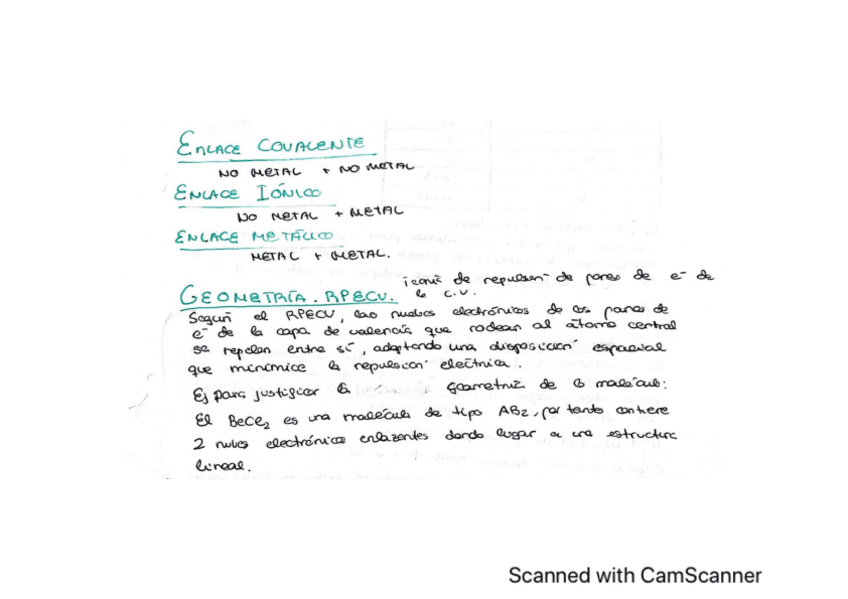 ENLACE COVALENTE
NO METAL + NO METAL
ENLACE IÓNICO
NO METAL + METAL
ENLACE METÁLICO
METAL + METAL.
de repulsión de pares de e- de
la C.V.
GEOMETRÍA. RPECV.
Según el RPECV, las nubes electrónicas de los pares de
e- de la capa de valencia, que rodean al átomo central
se repelen entre sí, adoptando una disposición espacial
que minimice la repulsión eléctrica.
Ej para justificar la geometría de la molécula:
El BeCl2 es una molécula de tipo AB2, por tanto contiene
2 nubes electrónicas enlazantes dando lugar a una estructura
lineal.
Scanned with CamScanner